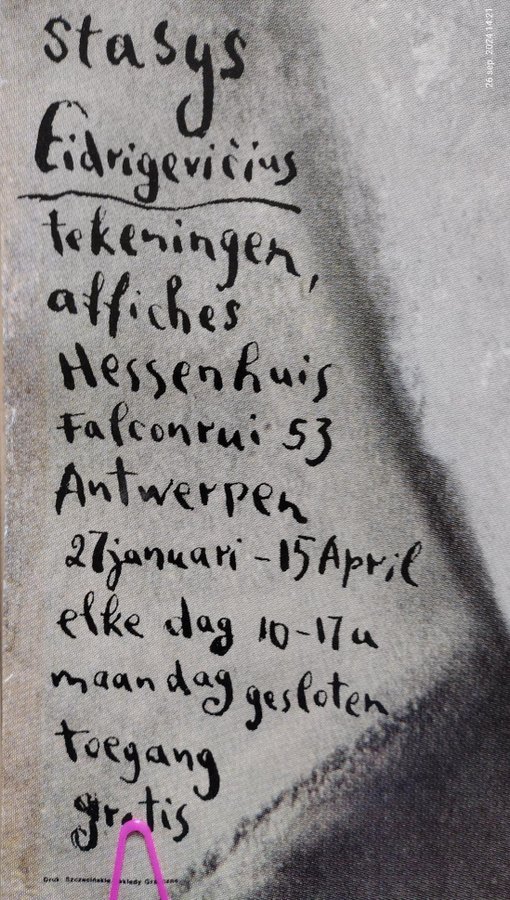 stasys
Eidrigevičius
tekeningen,
affiches
Hessenhuis
Falconrui 53
Antwerpen
27 januari - 15 April
elke dag 10-17u
maandag gesloten
toegang
gratis
Druk: Szczecińskie Zakłady Graficzne
26 sep. 2024 14:21